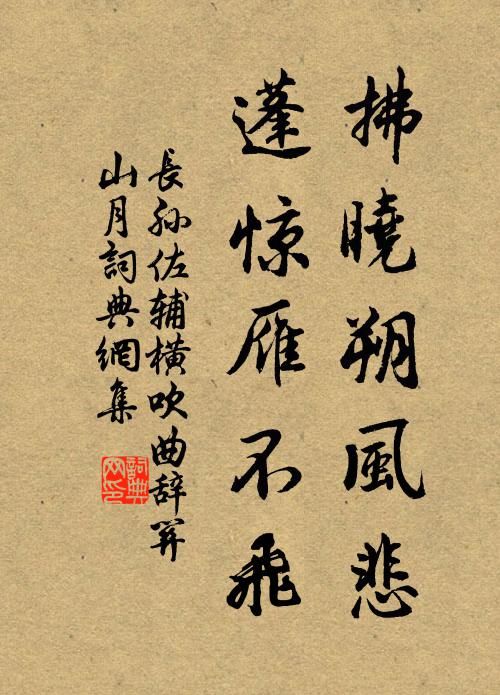 拂曉朔風悲
蓬惊雁不飛
長孙佐辅橫吹曲辞関
山月詞典網集
詞典
网印